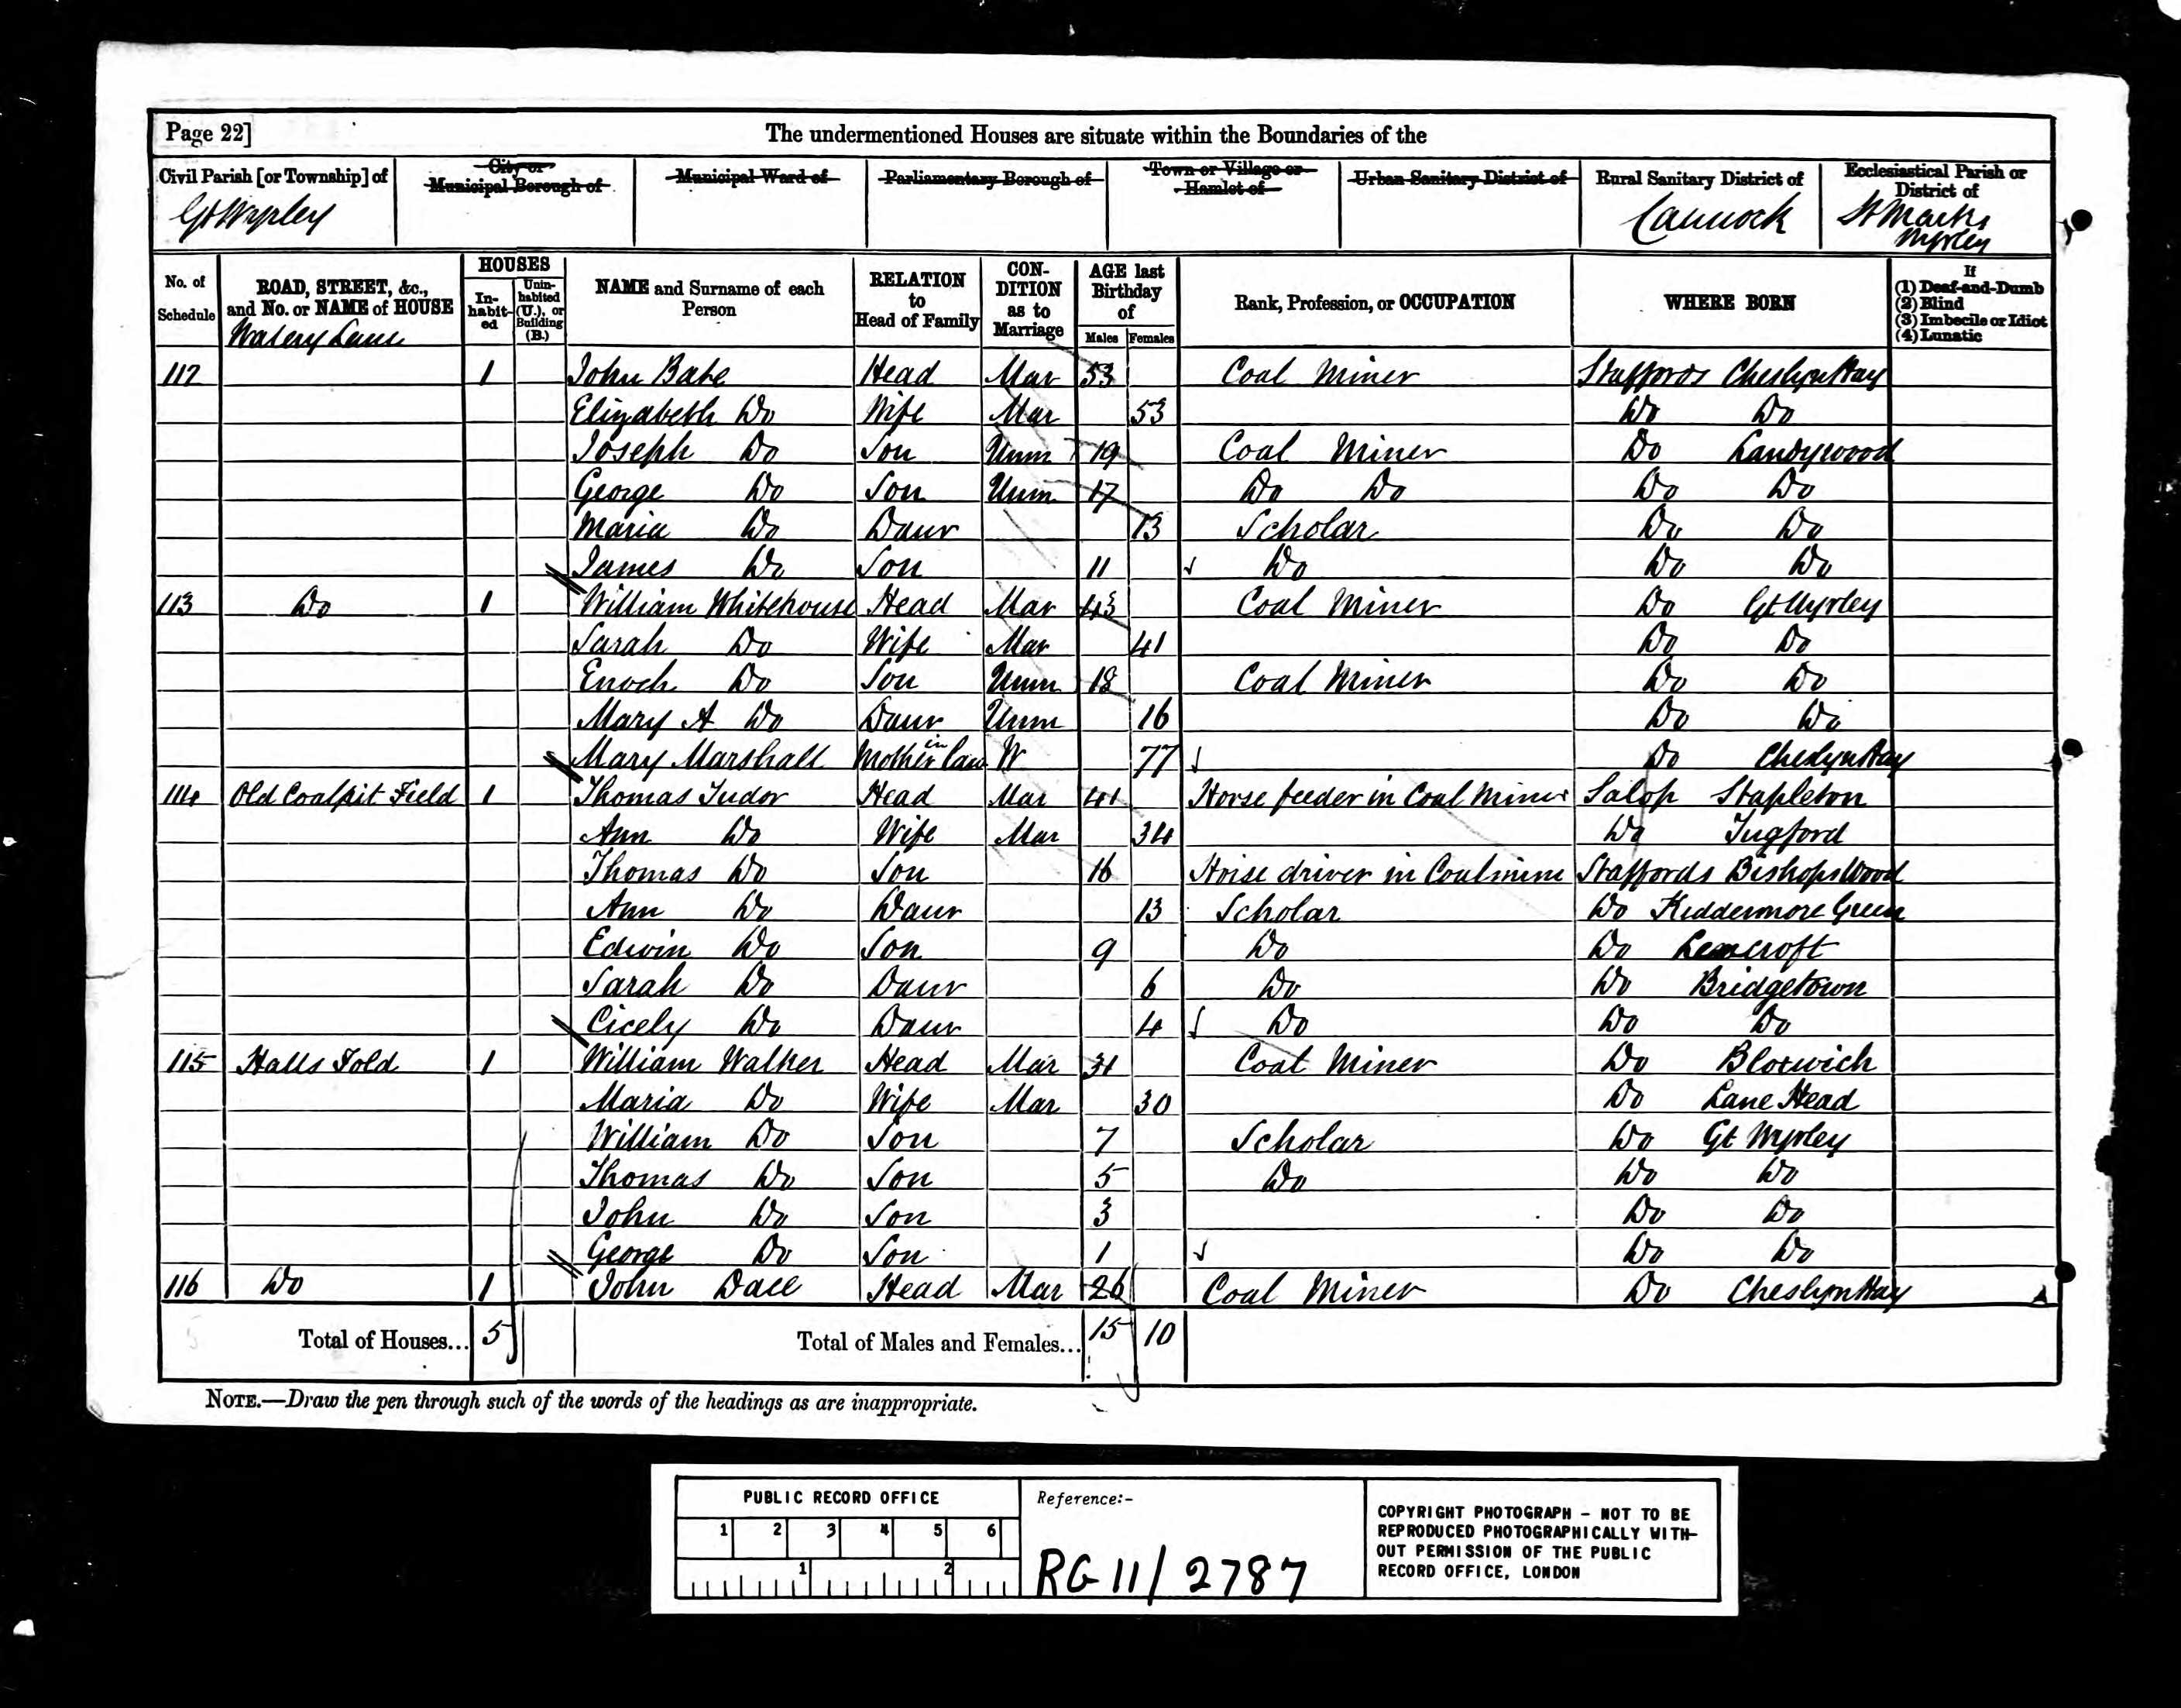 Page 22]
The undermentioned Houses are situate within the Boundaries of the
Civil Parish [or Township] of
City or Municipal Borough of
Municipal Ward of
Parliamentary Borough of
Town or Village or Hamlet of
Urban Sanitary District of
Rural Sanitary District of
Ecclesiastical Parish or District of
Gt Wyrley
Cannock
St Marks Wyrley
No. of Schedule
ROAD, STREET, &c., and No. or NAME of HOUSE
HOUSES
In-habit-ed
Unin-habited (U.), or Building (B.)
NAME and Surname of each Person
RELATION to Head of Family
CON-DITION as to Marriage
AGE last Birthday of
Males
Females
Rank, Profession, or OCCUPATION
WHERE BORN
If
(1) Deaf-and-Dumb
(2) Blind
(3) Imbecile or Idiot
(4) Lunatic
Watery Lane
112 1 John Bate Head Mar 53 Coal Miner Staffords Cheslyn Hay
Elizabeth Do Wife Mar 53 Do Do
Joseph Do Son Unm 19 Coal Miner Do Landywood
George Do Son Unm 17 Do Do Do Do
Maria Do Daur 13 Scholar Do Do
James Do Son 11 Do Do Do
113 Do 1 William Whitehouse Head Mar 43 Coal Miner Do Gt Wyrley
Sarah Do Wife Mar 41 Do Do
Enoch Do Son Unm 18 Coal Miner Do Do
Mary A Do Daur Unm 16 Do Do
Mary Marshall Mother in law W 77 Do Cheslyn Hay
114 Old Coalpit Field 1 Thomas Tudor Head Mar 41 Horse feeder in Coal Mine Salop Stapleton
Ann Do Wife Mar 34 Do Tugford
Thomas Do Son 16 Horse driver in Coalmine Staffords Bishops Wood
Ann Do Daur 13 Scholar Do Kiddermore Green
Edwin Do Son 9 Do Do Leacroft
Sarah Do Daur 6 Do Do Bridgetown
Cicely Do Daur 4 Do Do Do
115 Halls Fold 1 William Walker Head Mar 31 Coal Miner Do Bloxwich
Maria Do Wife Mar 30 Do Lane Head
William Do Son 7 Scholar Do Gt Wyrley
Thomas Do Son 5 Do Do Do
John Do Son 3 Do Do
George Do Son 1 Do Do
116 Do 1 John Dace Head Mar 26 Coal Miner Do Cheslyn Hay
Total of Houses... 5 Total of Males and Females... 15 10
NOTE.—Draw the pen through such of the words of the headings as are inappropriate.
PUBLIC RECORD OFFICE
1 2 3 4 5 6
1 2
Reference:-
RG 11/2787
COPYRIGHT PHOTOGRAPH - NOT TO BE
REPRODUCED PHOTOGRAPHICALLY WITH-
OUT PERMISSION OF THE PUBLIC
RECORD OFFICE, LONDON